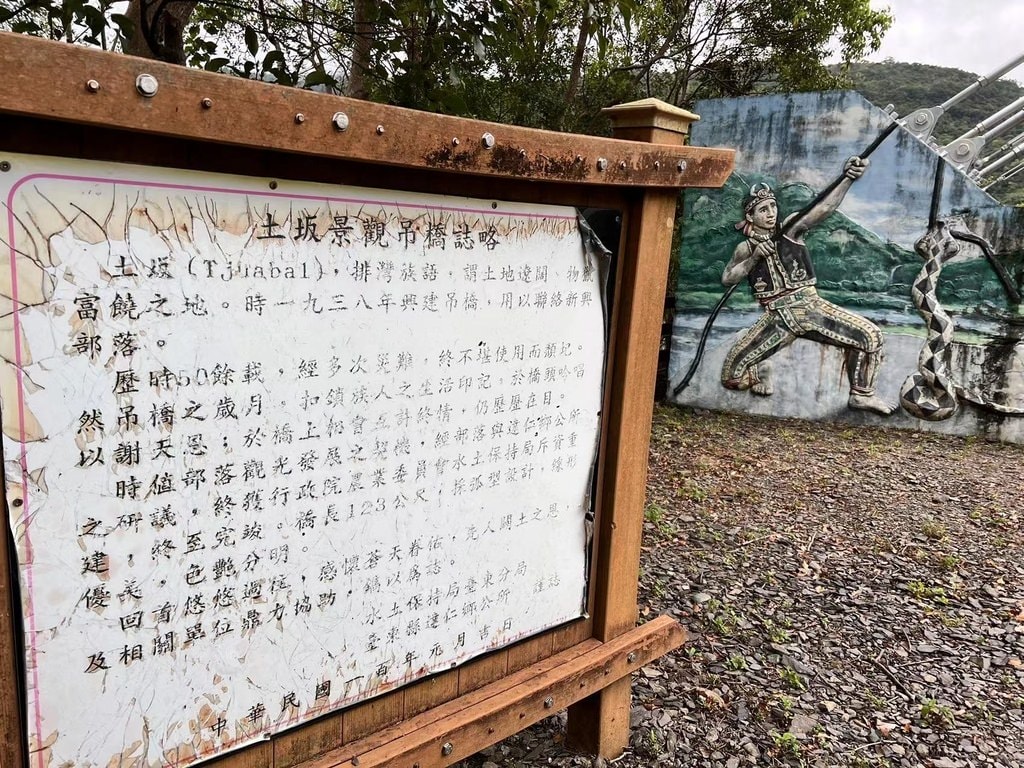 土坂景觀吊橋誌略
土坂(Tjuabal)，排灣族語，謂土地遼闊、物
富饒之地。時一九三八年興建吊橋，用以聯絡新興
部落。
歷時50餘載，經多次災難，終不堪使用而頹圮。
然吊橋之歲月。扣鎖族人之生活印記。於橋頭吟唱
以謝天恩；於橋上 會互訴終情，仍歷歷在目。
時值部落觀光發展之契機，經部落與達仁鄉公所
之研議，終獲行政院農業委員會水土保持局斥資重
建，終至完竣。橋長123公尺，採弧型設計，橋形
優美，色艷分明。
回首悠悠過往，感懷蒼天眷佑，先人闢土之恩，
及相關單位鼎力協助，鐫以為誌。
水土保持局臺東分局
臺東縣達仁鄉公所 謹誌
中華民國一百年元月吉日